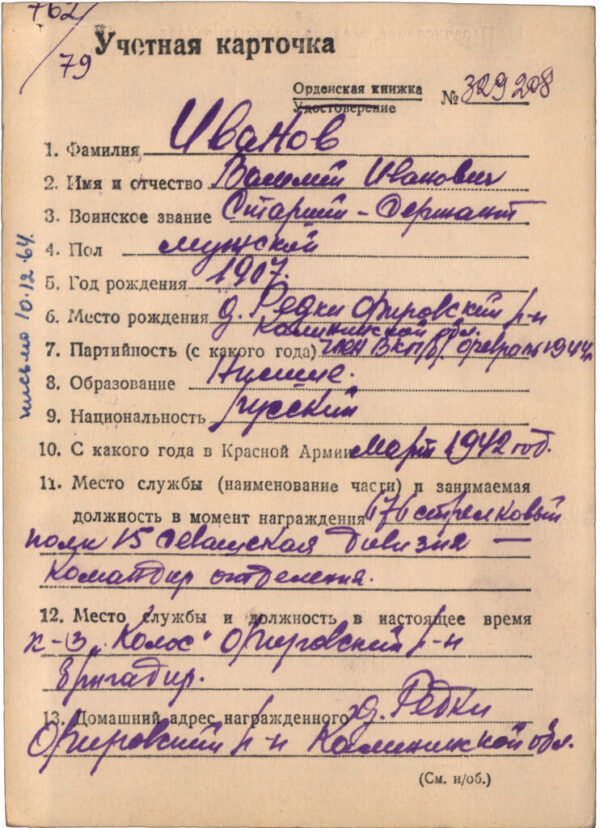 762/79
Учетная карточка
Орденская книжка
Удостоверение № 329208
1. Фамилия Иванов
2. Имя и отчество Василий Иванович
3. Воинское звание Старший-Сержант
4. Пол мужской
5. Год рождения 1907.
6. Место рождения д. Редки Фировский р-н
Калининской обл.
7. Партийность (с какого года) член ВКП/б/ февраль 1944
8. Образование Низшее.
9. Национальность русский
10. С какого года в Красной Армии март 1942 год.
11. Место службы (наименование части) и занимаемая
должность в момент награждения 676 стрелковый
полк 15 Сивашская дивизия —
командир отделения.
12. Место службы и должность в настоящее время
к-з „Колос" Фировский р-н
бригадир.
13. Домашний адрес награжденного д. Редки
Фировский р-н Калининской обл.
(См. н/об.)
письмо 10.12.64.